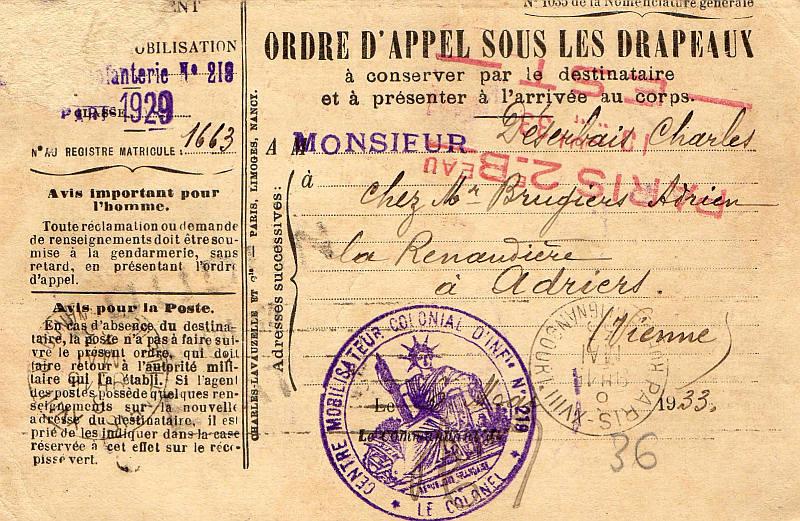 ENT
N° 1035 de la Nomenclature générale
OBILISATION
fanterie N° 219
PARIS
CLASSE
1929
N° AU REGISTRE MATRICULE : 1663
Avis important pour
l'homme.
Toute réclamation ou demande
de renseignements doit être sou-
mise à la gendarmerie, sans
retard, en présentant l'ordre
d'appel.
Avis pour la Poste.
En cas d'absence du destina-
taire, la poste n'a pas à faire sui-
vre le présent ordre, qui doit
faire retour à l'autorité mili-
taire qui l'a établi. Si l'agent
des postes possède quelques ren-
seignements sur la nouvelle
adresse du destinataire, il est
prié de les indiquer dans la case
réservée à cet effet sur le réce-
pissé vert.
CHARLES-LAVAUZELLE ET Cie — PARIS, LIMOGES, NANCY.
ORDRE D'APPEL SOUS LES DRAPEAUX
à conserver par le destinataire
et à présenter à l'arrivée au corps.
A M
MONSIEUR Charles
à chez Mr Brugiers Adrien
la Renaudière
à Adriers.
(Vienne)
Adresses successives :
Le 1933.
Le Commandant
CENTRE MOBILISATEUR COLONIAL D'INFie N° 219
LE COLONEL
PARIS 2e BEAU
EST
PARIS-XVIII
MAI
36